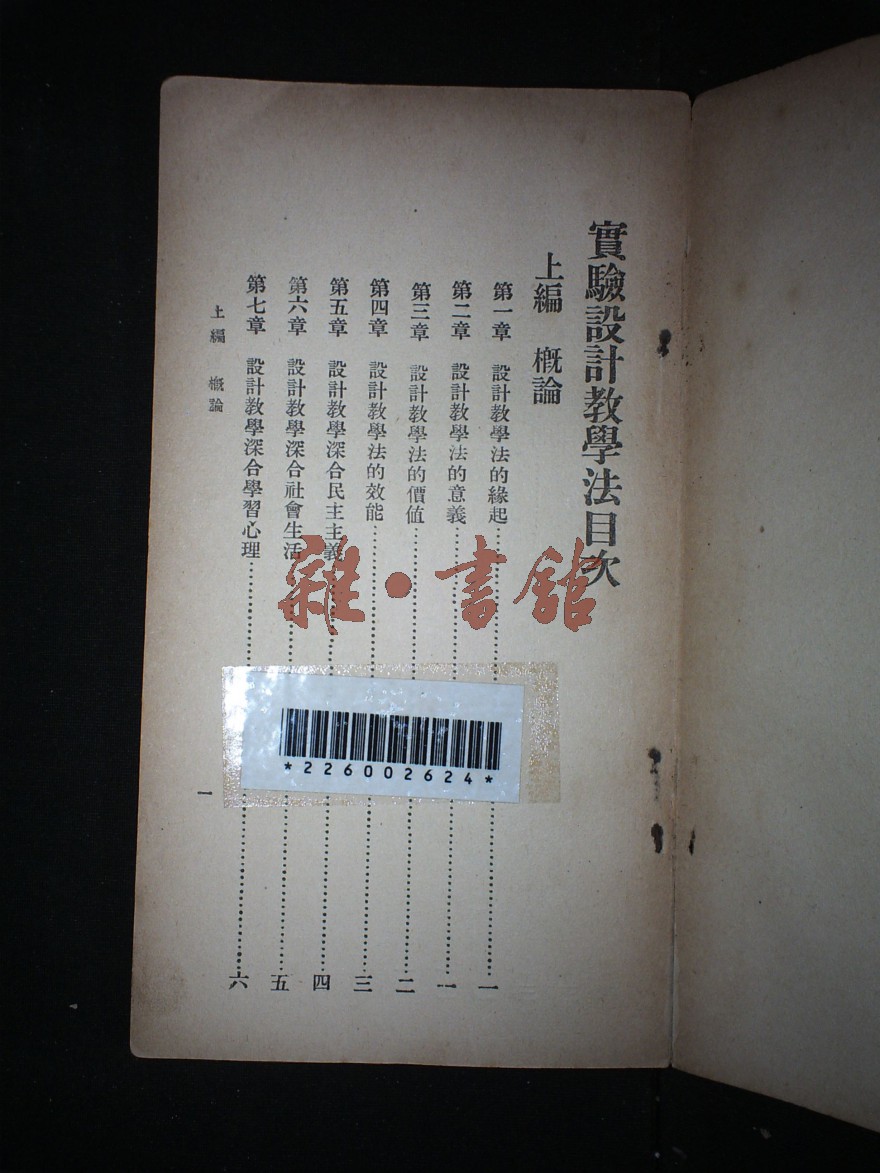 實驗設計教學法目次
上編　概論
第一章　設計教學法的緣起……一
第二章　設計教學法的意義……一
第三章　設計教學法的價值……二
第四章　設計教學法的效能……三
第五章　設計教學深合民主主義……四
第六章　設計教學深合社會生活……五
第七章　設計教學深合學習心理……六
上編　概論
一
雜·書館
*226002624*